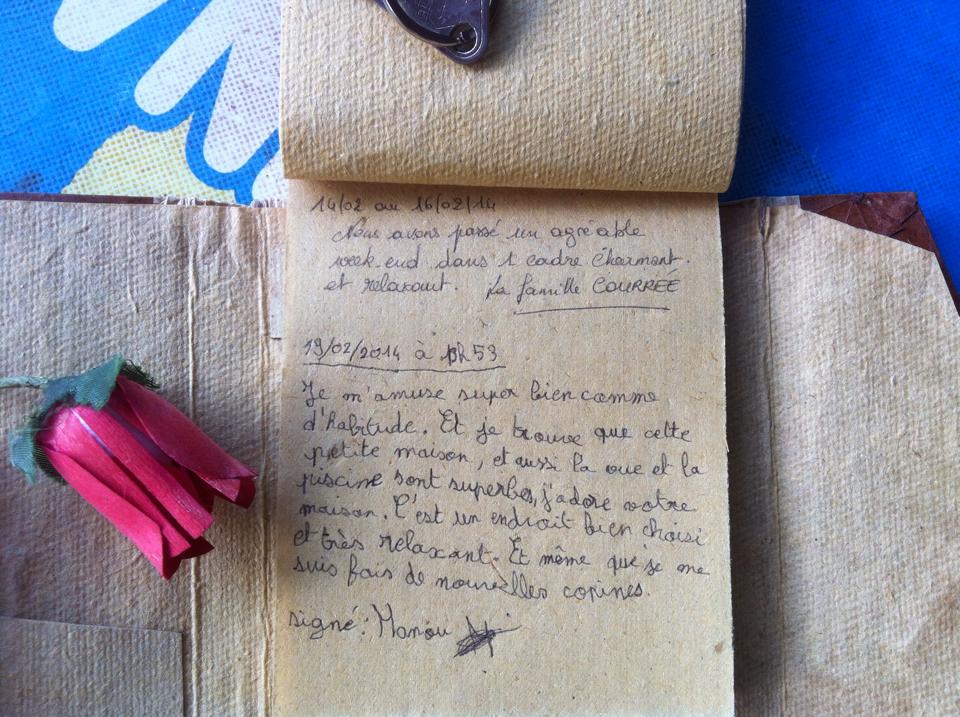 14/02 au 16/02/14
Nous avons passé un agréable
week-end dans 1 cadre charmant.
et relaxant. La famille COURRÉE
19/02/2014 à h53
Je m'amuse super bien comme
d'habitude. Et je trouve que cette
petite maison, et aussi la vue et la
piscine sont superbes, j'adore votre
maison. C'est un endroit bien choisi
et très relaxant. Et même que je me
suis fais de nouvelles copines.
signé: Manou